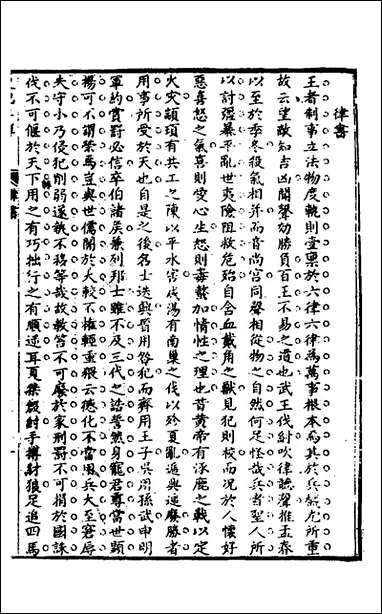 律書
王者制事立法物度軌則壹稟於六律六律為萬事根本焉其於兵械尤所重
故云望敵知吉凶聞聲効勝負百王不易之道也武王伐紂吹律聽聲推孟春
以至於季冬殺氣相并而音尚宮同聲相從物之自然何足怪哉兵者聖人所
以討彊暴平亂世夷險阻救危殆自含血戴角之獸見犯則校而況於人懷好
惡喜怒之氣喜則愛心生怒則毒螫加情性之理也昔黃帝有涿鹿之戰以定
火災顓頊有共工之陳以平水害成湯有南巢之伐以殄夏亂遞興遞廢勝者
用事所受於天也自是之後名士迭興晉用咎犯而齊用王子吳用孫武申明
軍約賞罰必信卒伯諸侯兼列邦土雖不及三代之誥誓然身寵君尊當世顯
揚可不謂榮焉豈與世儒闇於大較不權輕重猥云德化不當用兵大至窘辱
失守小乃侵犯削弱遂執不移等哉故教笞不可廢於家刑罰不可捐於國誅
伐不可偃於天下用之有巧拙行之有順逆耳夏桀殷紂手搏豺狼足追四馬